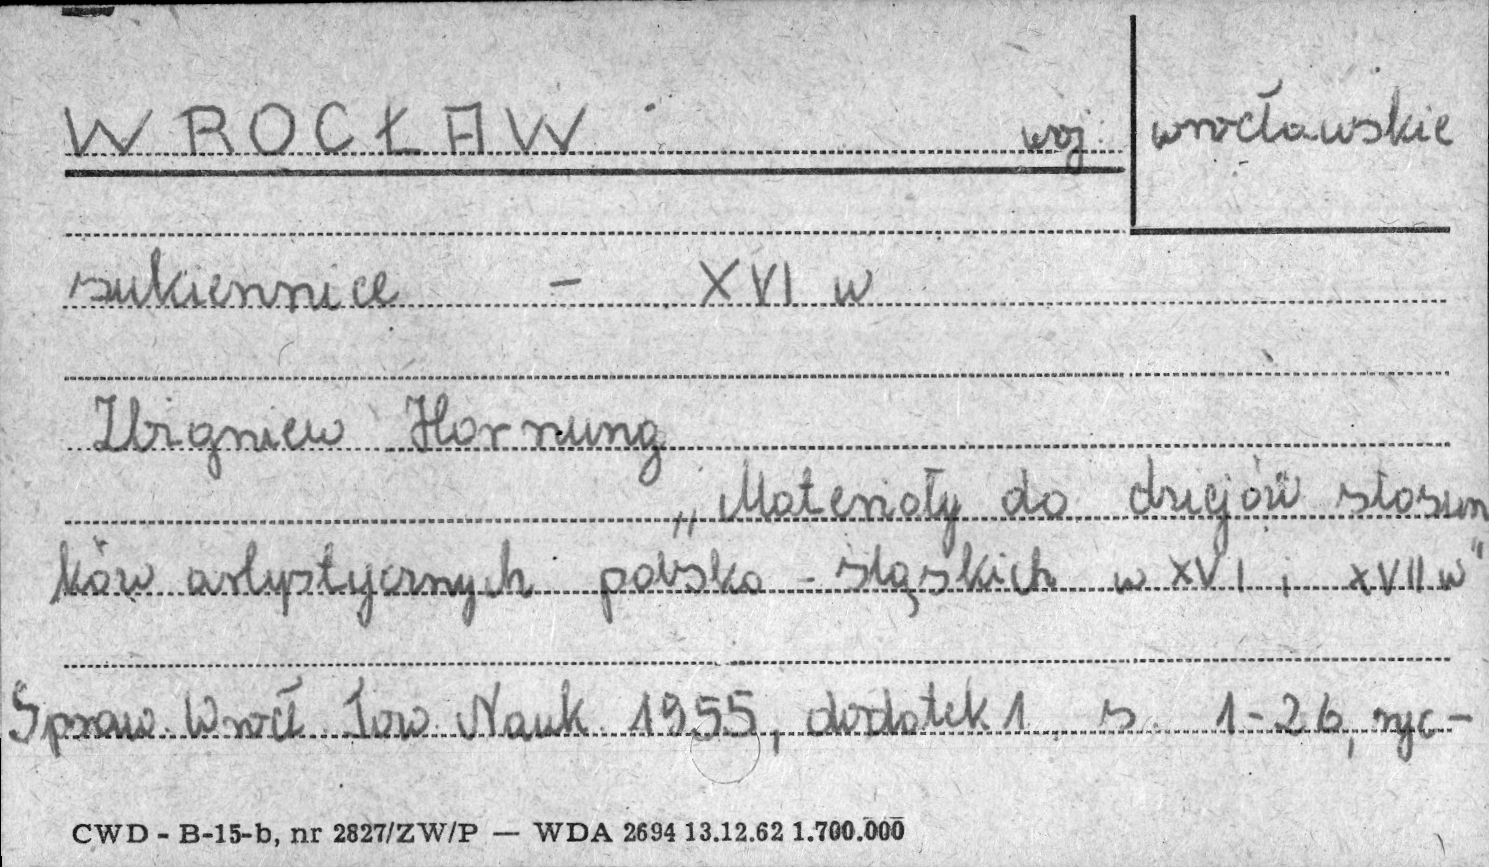 WROCŁAW woj. wrocławskie
sukiennice - XVI w
Zbigniew Hornung
„Materiały do dziejów stosun
ków artystycznych polsko - śląskich w XVI i XVII w"
Spraw. Wrocł Tow. Nauk 1955, dodatek 1 s. 1-26, ryc-
CWD - B-15-b, nr 2827/ZW/P — WDA 2694 13.12.62 1.700.000